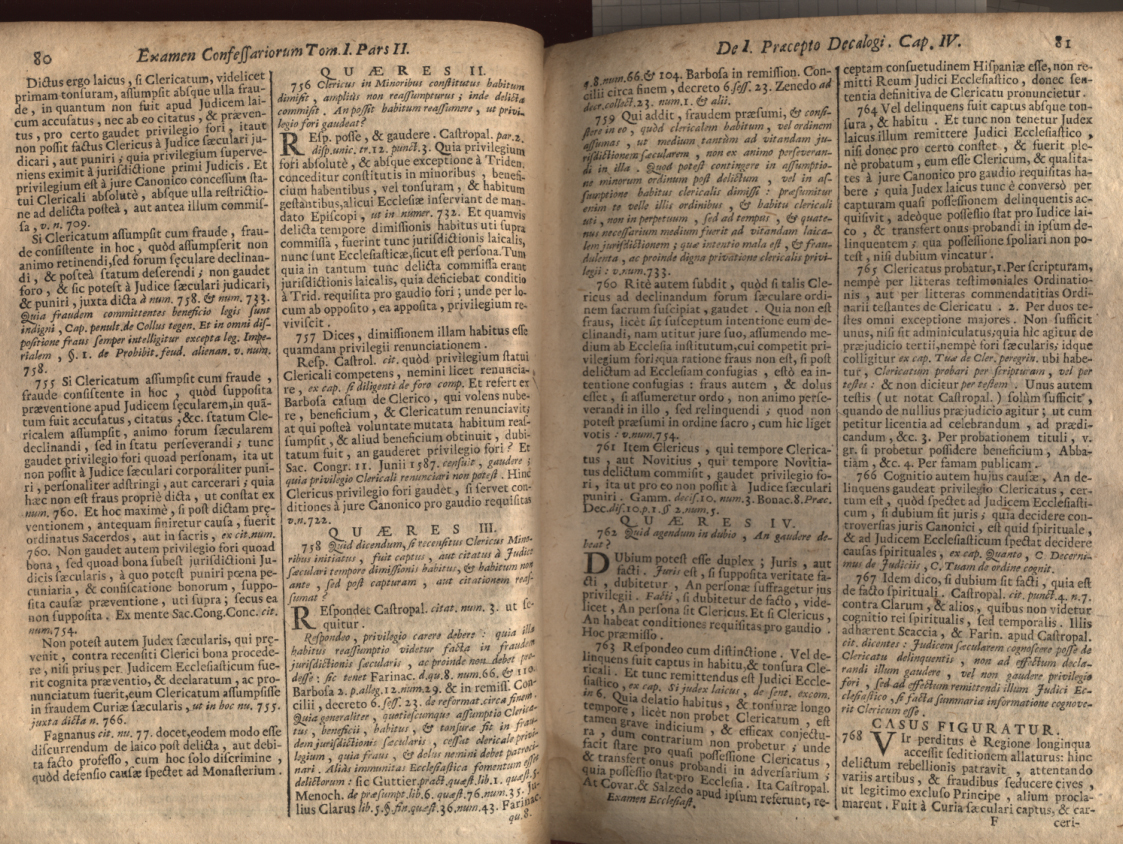 80
Examen Confeſſariorum Tom. I. Pars II.
Dictus ergo laicus, ſi Clericatum, videlicet
primam tonſuram, aſſumpſit abſque ulla frau-
de, in quantum non fuit apud Judicem lai-
cum accuſatus, nec ab eo citatus, & præven-
tus, pro certo gaudet privilegio fori, itaut
non poſſit factus Clericus à Judice ſæculari ju-
dicari, aut puniri; quia privilegium ſuperve-
niens eximit à jurisdictione primi Judicis. Et
privilegium eſt à jure Canonico conceſſum ſta-
tui Clericali abſolutè, abſque ulla reſtrictio-
ne ad delicta poſteà, aut antea illum commiſ-
ſa, v. n. 709.
Si Clericatum aſſumpſit cum fraude, frau-
de conſiſtente in hoc, quòd aſſumpſerit non
animo retinendi, ſed forum ſęculare declinan-
di, & poſteà ſtatum deſerendi; non gaudet
foro, & ſic poteſt à Judice ſæculari judicari,
& puniri, juxta dicta à num. 758. & num. 733.
Quia fraudem committentes beneficio legis ſunt
indigni, Cap. penult. de Cellus tegen. Et in omni diſ-
poſitione fraus ſemper intelligitur excepta leg. Impe-
rialem, §. 1. de Prohibit. feud. alienan. v. num.
758.
755 Si Clericatum aſſumpſit cum fraude,
fraude conſiſtente in hoc, quòd ſuppoſita
præventione apud Judicem ſęcularem, in quā-
tum fuit accuſatus, citatus, &c. ſtatum Cle-
ricalem aſſumpſit, animo forum ſæcularem
declinandi, ſed in ſtatu perſeverandi; tunc
gaudet privilegio fori quoad perſonam, ita ut
non poſſit à Judice ſæculari corporaliter puni-
ri, perſonaliter adſtringi, aut carcerari; quia
hæc non eſt fraus propriè dicta, ut conſtat ex
num. 760. Et hoc maximè, ſi poſt dictam præ-
ventionem, antequam finiretur cauſa, fuerit
ordinatus Sacerdos, aut in ſacris, ex cit. num.
760. Non gaudet autem privilegio fori quoad
bona, ſed quoad bona ſubeſt jurisdictioni Ju-
dicis ſæcularis, à quo poteſt puniri pœna pe-
cuniaria, & confiſcatione bonorum, ſuppo-
ſita cauſæ præventione, uti ſupra; ſecus ea
non ſuppoſita. Ex mente Sac. Cong. Conc. cit.
num. 754.
Non poteſt autem Judex ſæcularis, qui prę-
venit, contra recenſiti Clerici bona procede-
re, niſi prius per Judicem Eccleſiaſticum fue-
rit cognita præventio, & declaratum, ac pro-
nunciatum fuerit, eum Clericatum aſſumpſiſſe
in fraudem Curiæ ſæcularis, ut in hoc nu. 755.
juxta dicta n. 766.
Fagnanus cit. nu. 77. docet, eodem modo eſſe
diſcurrendum de laico poſt delicta, aut debi-
ta facto profeſſo, cum hoc ſolo diſcrimine,
quòd defenſio cauſæ ſpectet ad Monaſterium.
QUÆRES II.
756 Clericus in Minoribus conſtitutus habitum
dimiſit, amplius non reaſſumpturus; inde delicta
commiſit. An poſſit habitum reaſſumere, ut privi-
legio fori gaudeat?
REſp. poſſe, & gaudere. Caſtropal. par. 2.
diſp. unic. tr. 12. punct. 3. Quia privilegium
fori abſolutè, & abſque exceptione à Triden.
conceditur conſtitutis in minoribus, benefi-
cium habentibus, vel tonſuram, & habitum
geſtantibus, alicui Eccleſiæ inſerviant de man-
dato Epiſcopi, ut in numer. 732. Et quamvis
delicta tempore dimiſſionis habitus uti ſupra
commiſſa, fuerint tunc jurisdictionis laicalis,
nunc ſunt Eccleſiaſticæ, ſicut eſt perſona. Tum
quia in tantum tunc delicta commiſſa erant
jurisdictionis laicalis, quia deficiebat conditio
à Trid. requiſita pro gaudio fori; unde per lo-
cum ab oppoſito, ea appoſita, privilegium re-
viviſcit.
757 Dices, dimiſſionem illam habitus eſſe
quamdam privilegii renunciationem.
Reſp. Caſtrol. cit. quòd privilegium ſtatui
Clericali competens, nemini licet renuncia-
re, ex cap. ſi diligenti de foro comp. Et refert ex
Barboſa caſum de Clerico, qui volens nube-
re, beneficium, & Clericatum renunciavit;
at qui poſteà voluntate mutata habitum reaſ-
ſumpſit, & aliud beneficium obtinuit, dubi-
tatum fuit, an gauderet privilegio fori? Et
Sac. Congr. 11. Junii 1587. cenſuit, gaudere;
quia privilegio Clericali renunciari non poteſt. Hinc
Clericus privilegio fori gaudet, ſi ſervet con-
ditiones à jure Canonico pro gaudio requiſitas
v. n. 722.
QUÆRES III.
758 Quid dicendum, ſi recenſitus Clericus Mino-
ribus initiatus, fuit captus, aut citatus à Judice
ſæculari tempore dimiſſionis habitus, & habitum non
ante, ſed poſt capturam, aut citationem reaſ-
ſumat?
REſpondet Caſtropal. citat. num. 3. ut ſe-
quitur.
Reſpondeo, privilegio carere debere: quia illa
habitus reaſſumptio videtur facta in fraudem
jurisdictionis ſæcularis, ac proinde non debet pro-
deſſe: ſic tenet Farinac. d. qu. 8. num. 66. & 110.
Barboſa 2. p. alleg. 12. num. 29. & in remiſſ. Con-
cilii, decreto 6. ſeſſ. 23. de reformat. circa finem.
Quia generaliter, quotieſcumque aſſumptio Clerica-
tus, beneficii, habitus, & tonſuræ fit in frau-
dem jurisdictionis ſæcularis, ceſſat clericale privi-
legium, quia fraus, & dolus nemini debet patroci-
nari. Aliàs immunitas Eccleſiaſtica fomentum eſſet
delictorum: ſic Guttier. pract. quæſt. lib. 1. quæſt. 5.
Menoch. de præſumpt. lib. 6. quæſt. 76. num. 35. Ju-
lius Clarus lib. 5. §. fin. quæſt. 36. num. 43. Farinac.
qu. 8.
De I. Præcepto Decalogi. Cap. IV.
81
q. 8. num. 66. & 104. Barboſa in remiſſion. Con-
cilii circa finem, decreto 6. ſeſſ. 23. Zenedo ad
decr. collect. 23. num. 1. & alii.
759 Qui addit, fraudem præſumi, & conſi-
ſtere in eo, quòd clericalem habitum, vel ordinem
aſſumas, ut medium tantùm ad vitandam ju-
risdictionem ſæcularem, non ex animo perſeveran-
di in illa. Quod poteſt contingere in aſſumptio-
ne minorum ordinum poſt delictum, vel in aſ-
ſumptione habitus clericalis dimiſſi: præſumitur
enim te velle illis ordinibus, & habitu clericali
uti, non in perpetuum, ſed ad tempus, & quate-
nus neceſſarium medium fuerit ad vitandam laica-
lem jurisdictionem; quæ intentio mala eſt, & frau-
dulenta, ac proinde digna privatione clericalis privi-
legii: v. num. 733.
760 Ritè autem ſubdit, quòd ſi talis Cle-
ricus ad declinandum forum ſæculare ordi-
nem ſacrum ſuſcipiat, gaudet. Quia non eſt
fraus, licèt ſit ſuſceptum intentione eum de-
clinandi, nam utitur jure ſuo, aſſumendo me-
dium ab Eccleſia inſtitutum, cui competit pri-
vilegium fori; qua ratione fraus non eſt, ſi poſt
delictum ad Eccleſiam confugias, eſtò ea in-
tentione confugias: fraus autem, & dolus
eſſet, ſi aſſumeretur ordo, non animo perſe-
verandi in illo, ſed relinquendi; quod non
poteſt præſumi in ordine ſacro, cum hic liget
votis: v. num. 754.
761 Item Clericus, qui tempore Clerica-
tus, aut Novitius, qui tempore Novitia-
tus delictum commiſit, gaudet privilegio fo-
ri, ita ut pro eo non poſſit à Judice ſæculari
puniri. Gamm. deciſ. 10. num. 3. Bonac. 8. Præc.
Dec. diſ. 10. p. 1. §. 2. num. 5.
QUÆRES IV.
762 Quid agendum in dubio, An gaudere de-
beat?
DUbium poteſt eſſe duplex; Juris, aut
facti. Juris eſt, ſi ſuppoſita veritate fa-
cti, dubitetur, An perſonæ ſuffragetur jus
privilegii. Facti, ſi dubitetur de facto, vide-
licet, An perſona ſit Clericus. Et ſi Clericus,
An habeat conditiones requiſitas pro gaudio.
Hoc præmiſſo.
763 Reſpondeo cum diſtinctione. Vel de-
linquens fuit captus in habitu, & tonſura Cle-
ricali. Et tunc remittendus eſt Judici Eccle-
ſiaſtico, ex cap. Si judex laicus, de ſent. excom.
in 6. Quia delatio habitus, & tonſuræ longo
tempore, licèt non probet Clericatum, eſt
tamen grave indicium, & efficax conjectu-
ra, dum contrarium non probetur; unde
facit ſtare pro quaſi poſſeſſione Clericatus,
& transfert onus probandi in adverſarium;
quia poſſeſſio ſtat pro Eccleſia. Ita Caſtropal.
At Covar. & Salzedo apud ipſum referunt, re-
Examen Eccleſiaſt.
ceptam conſuetudinem Hiſpaniæ eſſe, non re-
mitti Reum Judici Eccleſiaſtico, donec ſen-
tentia definitiva de Clericatu pronuncietur.
764 Vel delinquens fuit captus abſque ton-
ſura, & habitu. Et tunc non tenetur Judex
laicus illum remittere Judici Eccleſiaſtico,
niſi donec pro certo conſtet, & fuerit ple-
nè probatum, eum eſſe Clericum, & qualita-
tes à jure Canonico pro gaudio requiſitas ha-
bere; quia Judex laicus tunc è conversò per
capturam quaſi poſſeſſionem delinquentis ac-
quiſivit, adeòque poſſeſſio ſtat pro Iudice lai-
co, & transfert onus probandi in ipſum de-
linquentem; qua poſſeſſione ſpoliari non po-
teſt, niſi dubium vincatur.
765 Clericatus probatur, 1. Per ſcripturam,
nempè per litteras teſtimoniales Ordinatio-
nis, aut per litteras commendatitias Ordi-
narii teſtantes de Clericatu. 2. Per duos te-
ſtes omni exceptione majores. Non ſufficit
unus, niſi ſit adminiculatus; quia hic agitur de
præjudicio tertii, nempè fori ſæcularis; idque
colligitur ex cap. Tuæ de Cler. peregrin. ubi habe-
tur, Clericatum probari per ſcripturam, vel per
teſtes: & non dicitur per teſtem. Unus autem
teſtis (ut notat Caſtropal.) ſolùm ſufficit,
quando de nullius præjudicio agitur; ut cum
petitur licentia ad celebrandum, ad prædi-
candum, &c. 3. Per probationem tituli, v.
gr. ſi probetur poſſidere beneficium, Abba-
tiam, &c. 4. Per famam publicam.
766 Cognitio autem hujus cauſæ, An de-
linquens gaudeat privilegio Clericatus, cer-
tum eſt, quòd ſpectet ad Judicem Eccleſiaſti-
cum, ſi dubium ſit juris; quia decidere con-
troverſias juris Canonici, eſt quid ſpirituale,
& ad Judicem Eccleſiaſticum ſpectat decidere
cauſas ſpirituales, ex cap. Quanto, C. Decerni-
mus de Judiciis, C. Tuam de ordine cognit.
767 Idem dico, ſi dubium ſit facti, quia eſt
de facto ſpirituali. Caſtropal. cit. punct. 4. n. 7.
contra Clarum, & alios, quibus non videtur
cognitio rei ſpiritualis, ſed temporalis. Illis
adhærent Scaccia, & Farin. apud Caſtropal.
cit. dicentes: Judicem ſæcularem cognoſcere poſſe de
Clericatu delinquentis, non ad effectum decla-
randi illum gaudere, vel non gaudere privilegio
fori, ſed ad effectum remittendi illum Judici Ec-
cleſiaſtico, ſi facta ſummaria informatione cognove-
rit Clericum eſſe.
CASUS FIGURATUR.
768 VIr perditus è Regione longinqua
acceſſit ſeditionem allaturus: hinc
delictum rebellionis patravit, attentando
variis artibus, & fraudibus ſeducere cives,
ut legitimo excluſo Principe, alium procla-
marent. Fuit à Curia ſæculari captus, & car-
F
ceri-